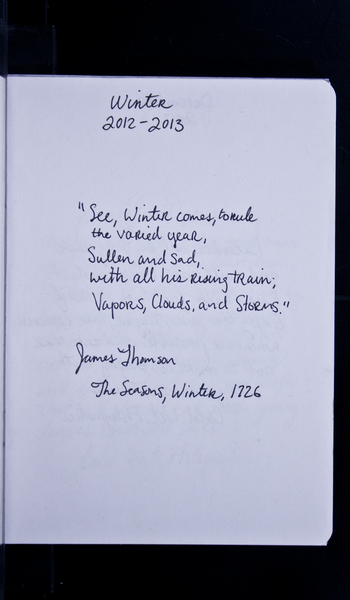 Winter
2012-2013
"See, Winter comes, to rule
the varied year,
Sullen and Sad,
with all his Rising Train;
Vapors, Clouds, and Storms."
James Thomson
The Seasons, Winter, 1726